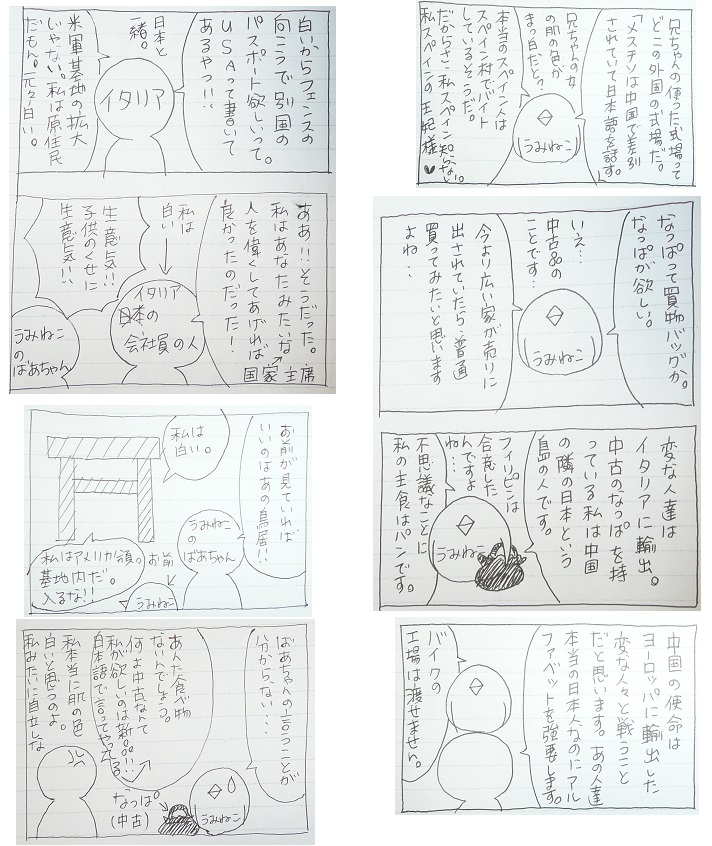 兄ちゃんの使った式場って
どこの外国の式場だ。
「メスチソは中国で差別
されていて日本語を話す。
兄ちゃんの女
の肌の色が
まっ白だと?
うみねこ
本当のスペイン人は
スペイン村でバイト
しているそうだ。
だからさ、私スペイン知らない
私スペインの王妃様♥
なっぱって買物バッグか。
なっぱが欲しい。
いえ…
中古品の
ことです…
うみねこ
今より広い家が売りに
出されていたら…普通
買ってみたいと思います
よね…
変な人達は
イタリアに輸出。
中古のなっぱを持
っている私は中国
の隣の日本という
島の人です。
フィリピンは
合意した
んですよ
ね…
うみねこ
不思議なことに
私の主食はパンです。
中国の使命は
ヨーロッパに輸出した
変な人々と戦うこと
だと思います。あの人達
本当の日本人なのにアル
ファベットを強要します。
バイクの
工場は渡せません。
白いからフェンスの
向こうで別国の
パスポート欲しいって。
USAって書いて
あるやつ!!
日本と
一緒。
イタリア
米軍基地の拡大
じゃない。私は原住民
だもん。元々白い。
ああ!!そうだった。
私はあなたみたいな
人を偉くしてあげれば
良かったのだった!
国家主席
私は
白い
イタリア
日本の
会社員の人
生意気!!
子供のくせに
生意気!!
うみねこ
の
ばあちゃん
お前が見ていれば
いいのはあの鳥居!!
私は
白い。
うみねこ
の
ばあちゃん
私はアメリカ領。
基地内だ。
入るな!!
お前
うみねこ
ばあちゃんの言うことが
分からない…
あんた食べ物
ないんでしょう。
何よ中古なんて
私が欲しいのは新品!!
日本語で言ってやってる
私本当に肌の色
白いと思うのよ。
私みたいに自立しな
なっぱ。
(中古)
うみねこ